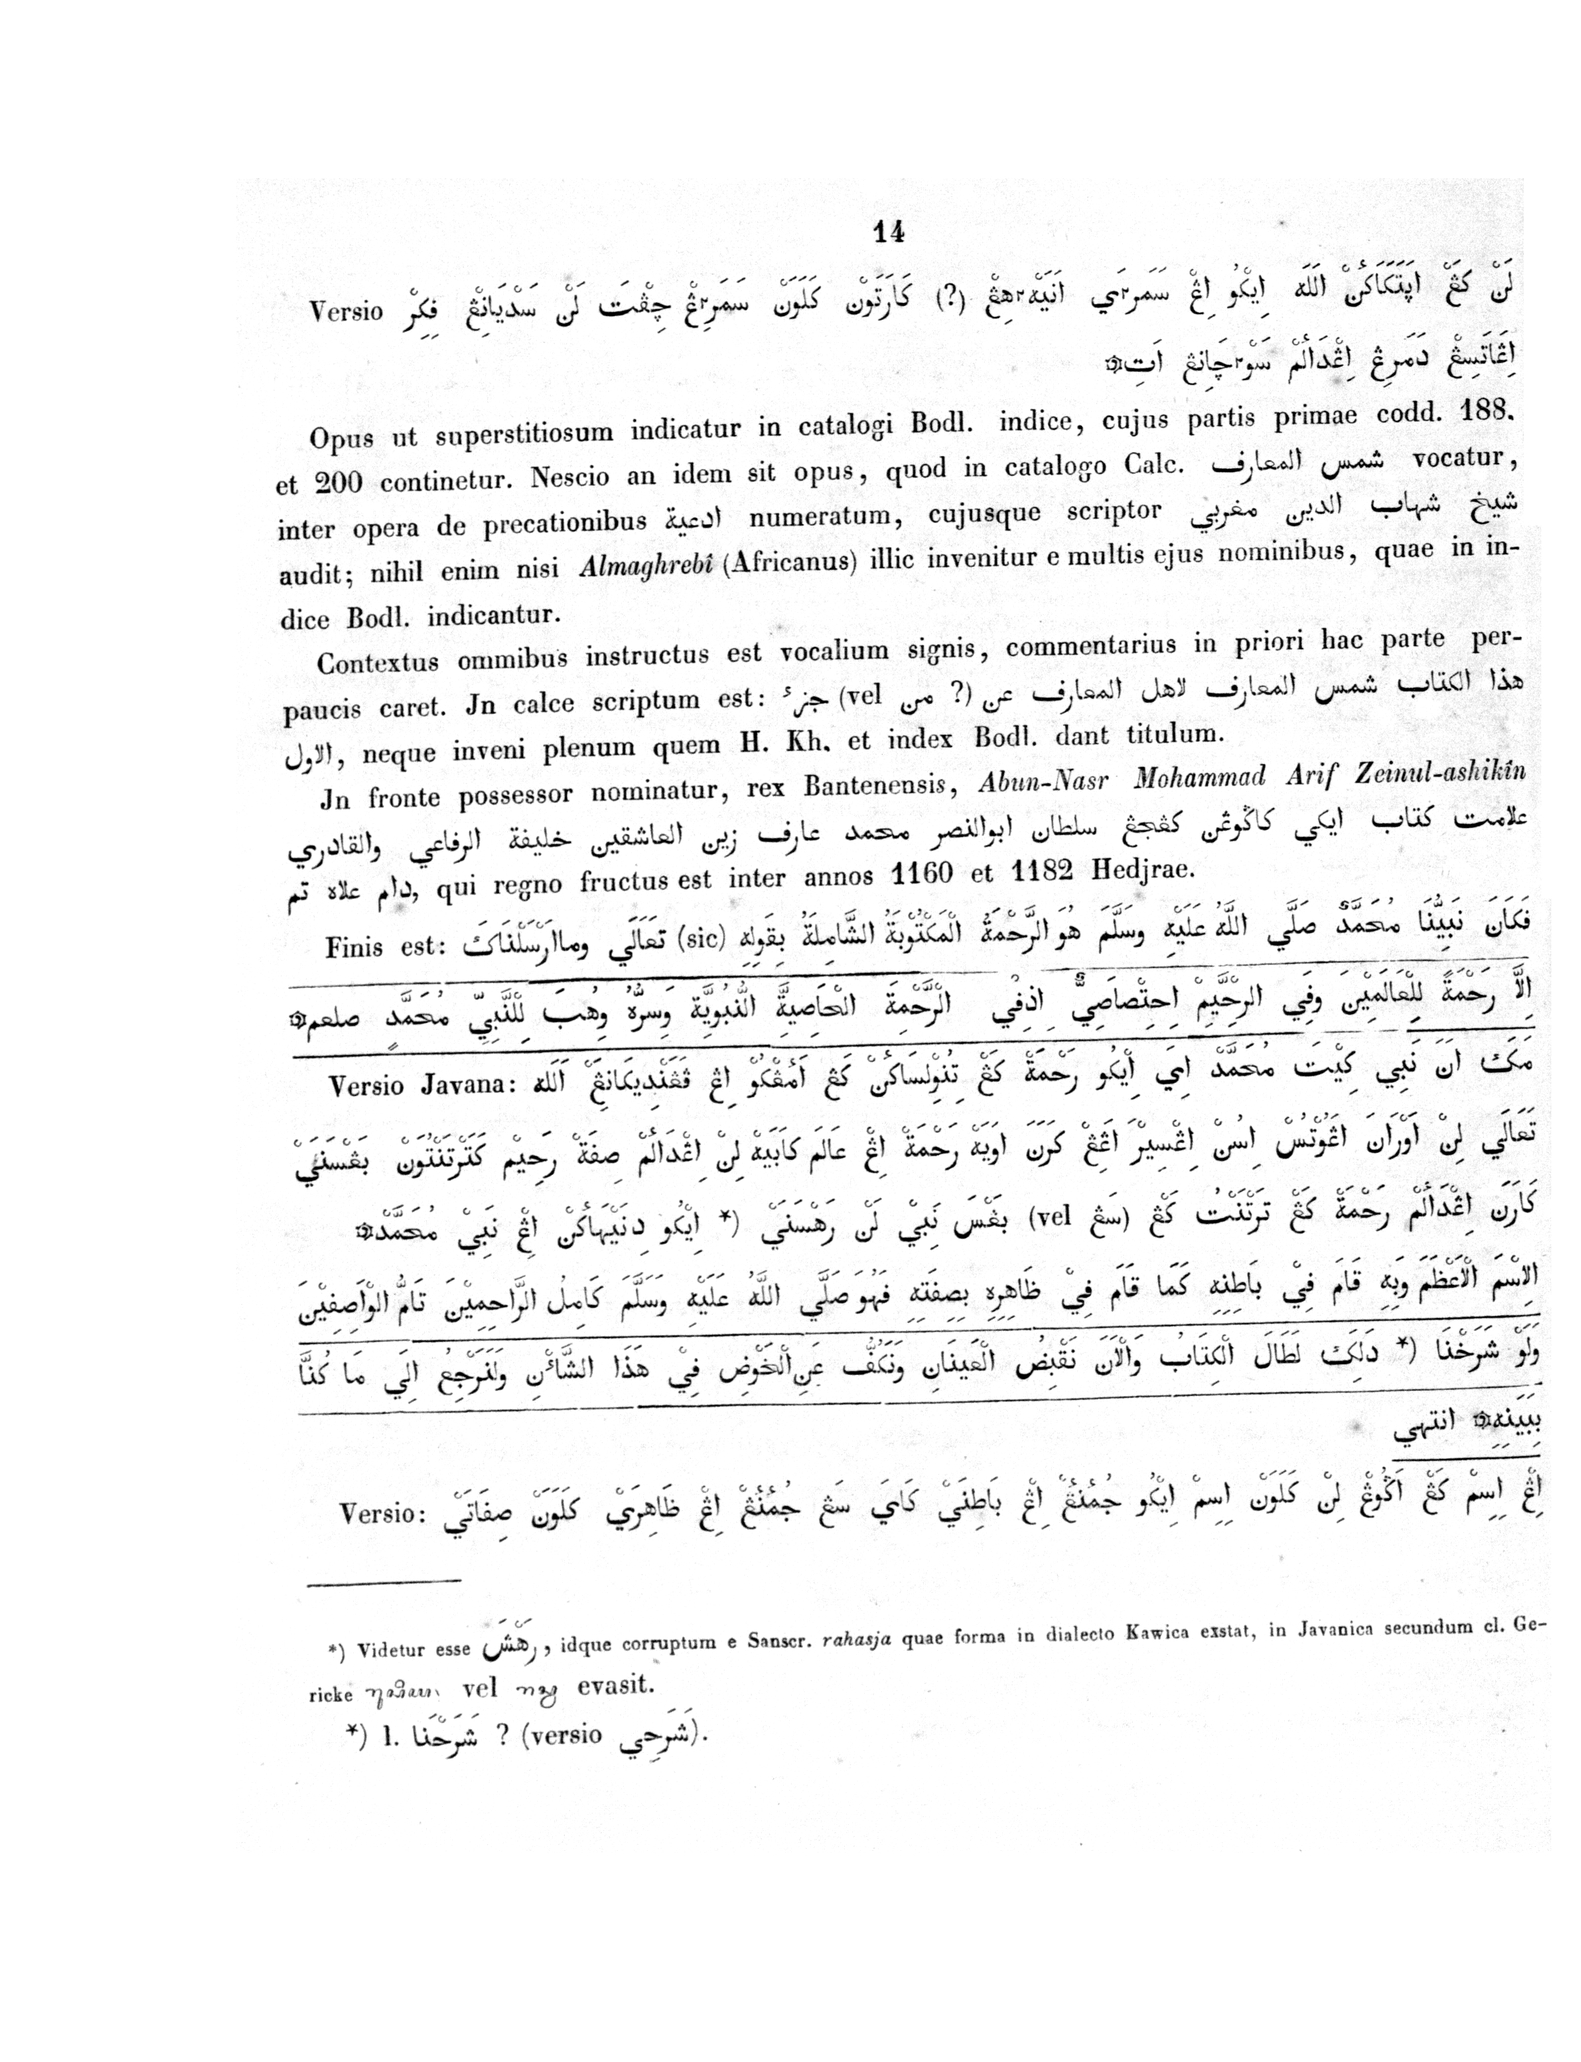 14
Versio لَنْ كَڠْ اَپَتَكَاكَنْ اَللَه اِيْكُو اِڠْ سَمَرَي اَنَيَه هِڠْ (?) كَارَتَوْن كَلَوَنْ سَمَرِڠْ چِڤْتَ لَنْ سَدْيَانِڠْ فِكِرْ
اِڠَاتَسِڠْ دَمَرِڠْ اِڠْدَالَمْ سَوچَانِڠْ اَتِ
Opus ut superstitiosum indicatur in catalogi Bodl. indice, cujus partis primae codd. 188.
et 200 continetur. Nescio an idem sit opus, quod in catalogo Calc. شمس المعارف vocatur,
inter opera de precationibus ادعية numeratum, cujusque scriptor شيخ شهاب الدين مغربي
audit; nihil enim nisi Almaghrebî (Africanus) illic invenitur e multis ejus nominibus, quae in in-
dice Bodl. indicantur.
Contextus ommibus instructus est vocalium signis, commentarius in priori hac parte per-
paucis caret. Jn calce scriptum est: هذا الكتاب شمس المعارف لاهل المعارف عن (? من vel) جزء
الاول, neque inveni plenum quem H. Kh. et index Bodl. dant titulum.
Jn fronte possessor nominatur, rex Bantenensis, Abun-Nasr Mohammad Arif Zeinul-ashikîn
علامت كتاب ايكي كاڬوڠن كڠجڠ سلطان ابوالنصر محمد عارف زين العاشقين خليفة الرفاعي والقادري
دام علاه تم, qui regno fructus est inter annos 1160 et 1182 Hedjrae.
Finis est: فَكَانَ نَبِيُّنَا مُحَمَّدٌ صَلَّي اللَّهُ عَلَيْهِ وَسَلَّمَ هُوَ الرَّحْمَةُ الْمَكْتُوْبَةُ الشَّامِلَةُ بِقَوِلِهِ (sic) تَعَالَي وماارْسَلْنَاكَ
اِلَّا رَحْمَةً لِلْعَالَمِيْنَ وَفِي الرحْيِمْ اِحتِصْاصِيٌّ اِذِفْي الرَّحْمَةَ الحَاصِيَةَّ النُّبُوِيَّةَ وَسِرُّهُ وُهِبَ لِلْنَّبِيِّ مُحَمَّدٍ صلعم
Versio Javana: مَكَ اَنَ نَبِي كِيْتَ مُحَمَّدْ اِيَي اِيْكُو رَحْمَةْ كَڠْ تِنُوْلِسَاكَنْ كَڠْ اَمَڠْكُوْ اِڠ ڤَڠَنْدِيكَانِڠْ اَللَه
تَعَالَي لِنْ اَوْرَانَ اَڠُوْتُسْ اِسُنْ اِڠْسِيْرَ اَڠِڠْ كَرَنَ اَوَيَهْ رَحْمَةْ اِڠْ عَالَمَ كَابَيَهْ لِنْ اِڠْدَالَمْ صِفَةْ رَحِيْم كَتَرْتَنْتُوَنْ بَڠْسَنَيْ
كَارَنَ اِڠْدَالَمْ رَحْمَةْ كَڠْ تَرْتَنْتُ كَڠْ (سَڠْ vel) بَڠْسَ نَبِيْ لَنْ رَهْسَنَيْ (* اِيْكُو دِنَيْهَاكَنْ اِڠْ نَبِيْ مُحَمَّدْ
الِاسْمَ الْاَعْظَمَ وَبِهِ قَامَ فِيْ بَاطِنِهِ كَمَا قَامَ فِيْ ظَاهِرِهِ بِصِفَتِهِ فَهُوَ صَلَّي اللَّهُ عَلَيْهِ وَسَلَّمَ كَامِلُ الرَّاحِمِيْنَ تَامُّ الْوَاصِفِيْنَ
وَلَوْ شَرَخْنَا (* ذَلِكَ لَطَالَ الْكِتَابُ وَالْاَنَ نَقْبِضُ الْعَيِنَانِ وَنَكُفُّ عَنِ الْخَوْضِ فِيْ هَذَا الشَّائْنِ وَلْنَرْجِعُ اِلَي مَا كُنَّا
بِبَيَنِهِ انتهي
Versio: اِڠْ اِسِمْ كَڠْ اَڬُوڠْ لِنْ كَلَوَنْ اِسِمْ اِيْكُو جُمَنَڠْ اِڠْ بَاطِنَيْ كَايَ سَڠ جُمَنَڠْ اِڠْ ظَاهِرَيْ كَلَوَنْ صِفَاتَيْ
*) Videtur esse رَهْسَ, idque corruptum e Sanscr. rahasja quae forma in dialecto Kawica exstat, in Javanica secundum cl. Ge-
ricke vel evasit.
*) l. شَرَحْنَا ? (versio شَرَحِي).